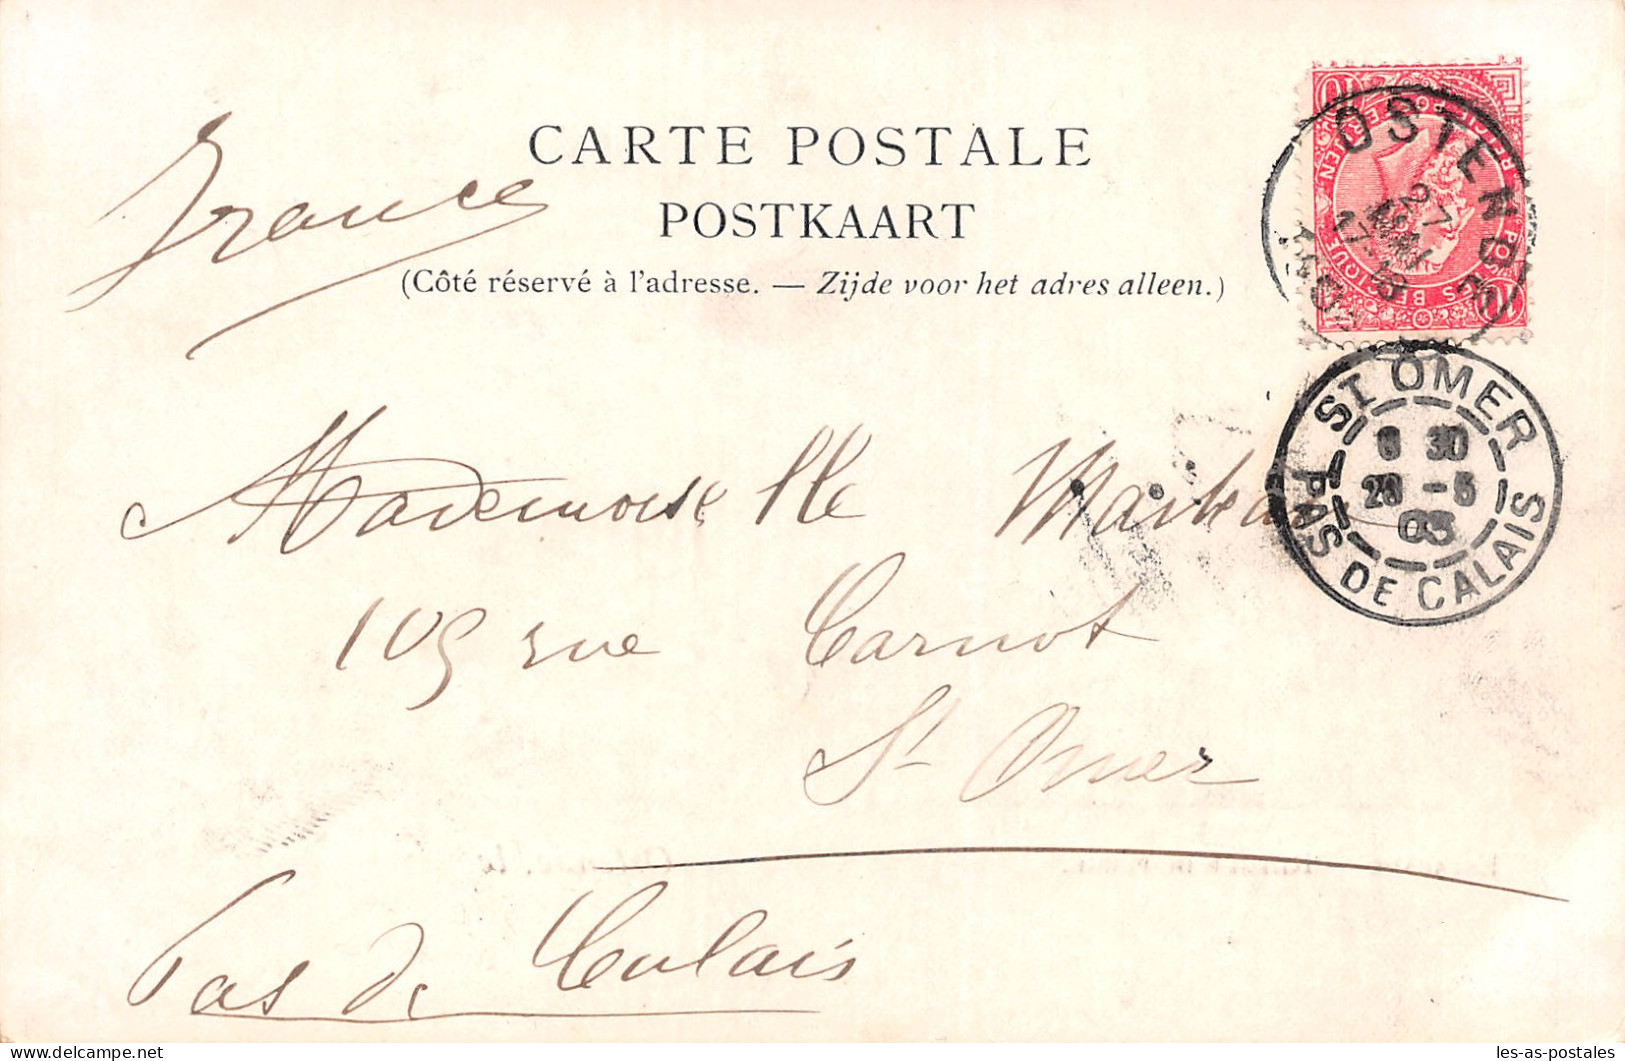 CARTE POSTALE
POSTKAART
(Côté réservé à l'adresse. — Zijde voor het adres alleen.)
France
OSTENDE
27 MAI
17-18
10
10
ST OMER
30
28 -5
03
PAS DE CALAIS
Mademoiselle
109 rue Carnot
St Omer
Pas de Calais
les-as-postales
Delcampe.net